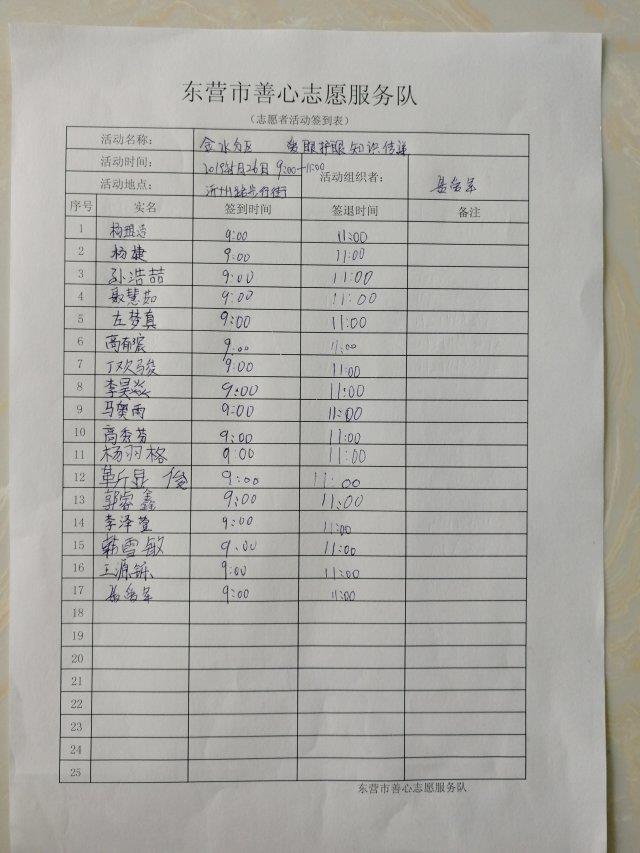 东营市善心志愿服务队
（志愿者活动签到表）
活动名称： 金水分区 爱眼护眼知识传递
活动时间： 9:00-11:00 活动组织者：
活动地点： 沂州路步行街
序号 实名 签到时间 签退时间 备注
1 9:00 11:00
2 杨捷 9:00 11:00
3 孙浩喆 9:00 11:00
4 聂慧茹 9:00 11:00
5 左梦真 9:00 11:00
6 高郁宸 9:00 11:00
7 丁欢骏 9:00 11:00
8 李昊焱 9:00 11:00
9 马奥雨 9:00 11:00
10 高秀芬 9:00 11:00
11 杨羽格 9:00 11:00
12 靳显俊 9:00 11:00
13 郭睿鑫 9:00 11:00
14 李泽萱 9:00 11:00
15 韩雪敏 9:00 11:00
16 王源铄 9:00 11:00
17 9:00 11:00
18
19
20
21
22
23
24
25
东营市善心志愿服务队